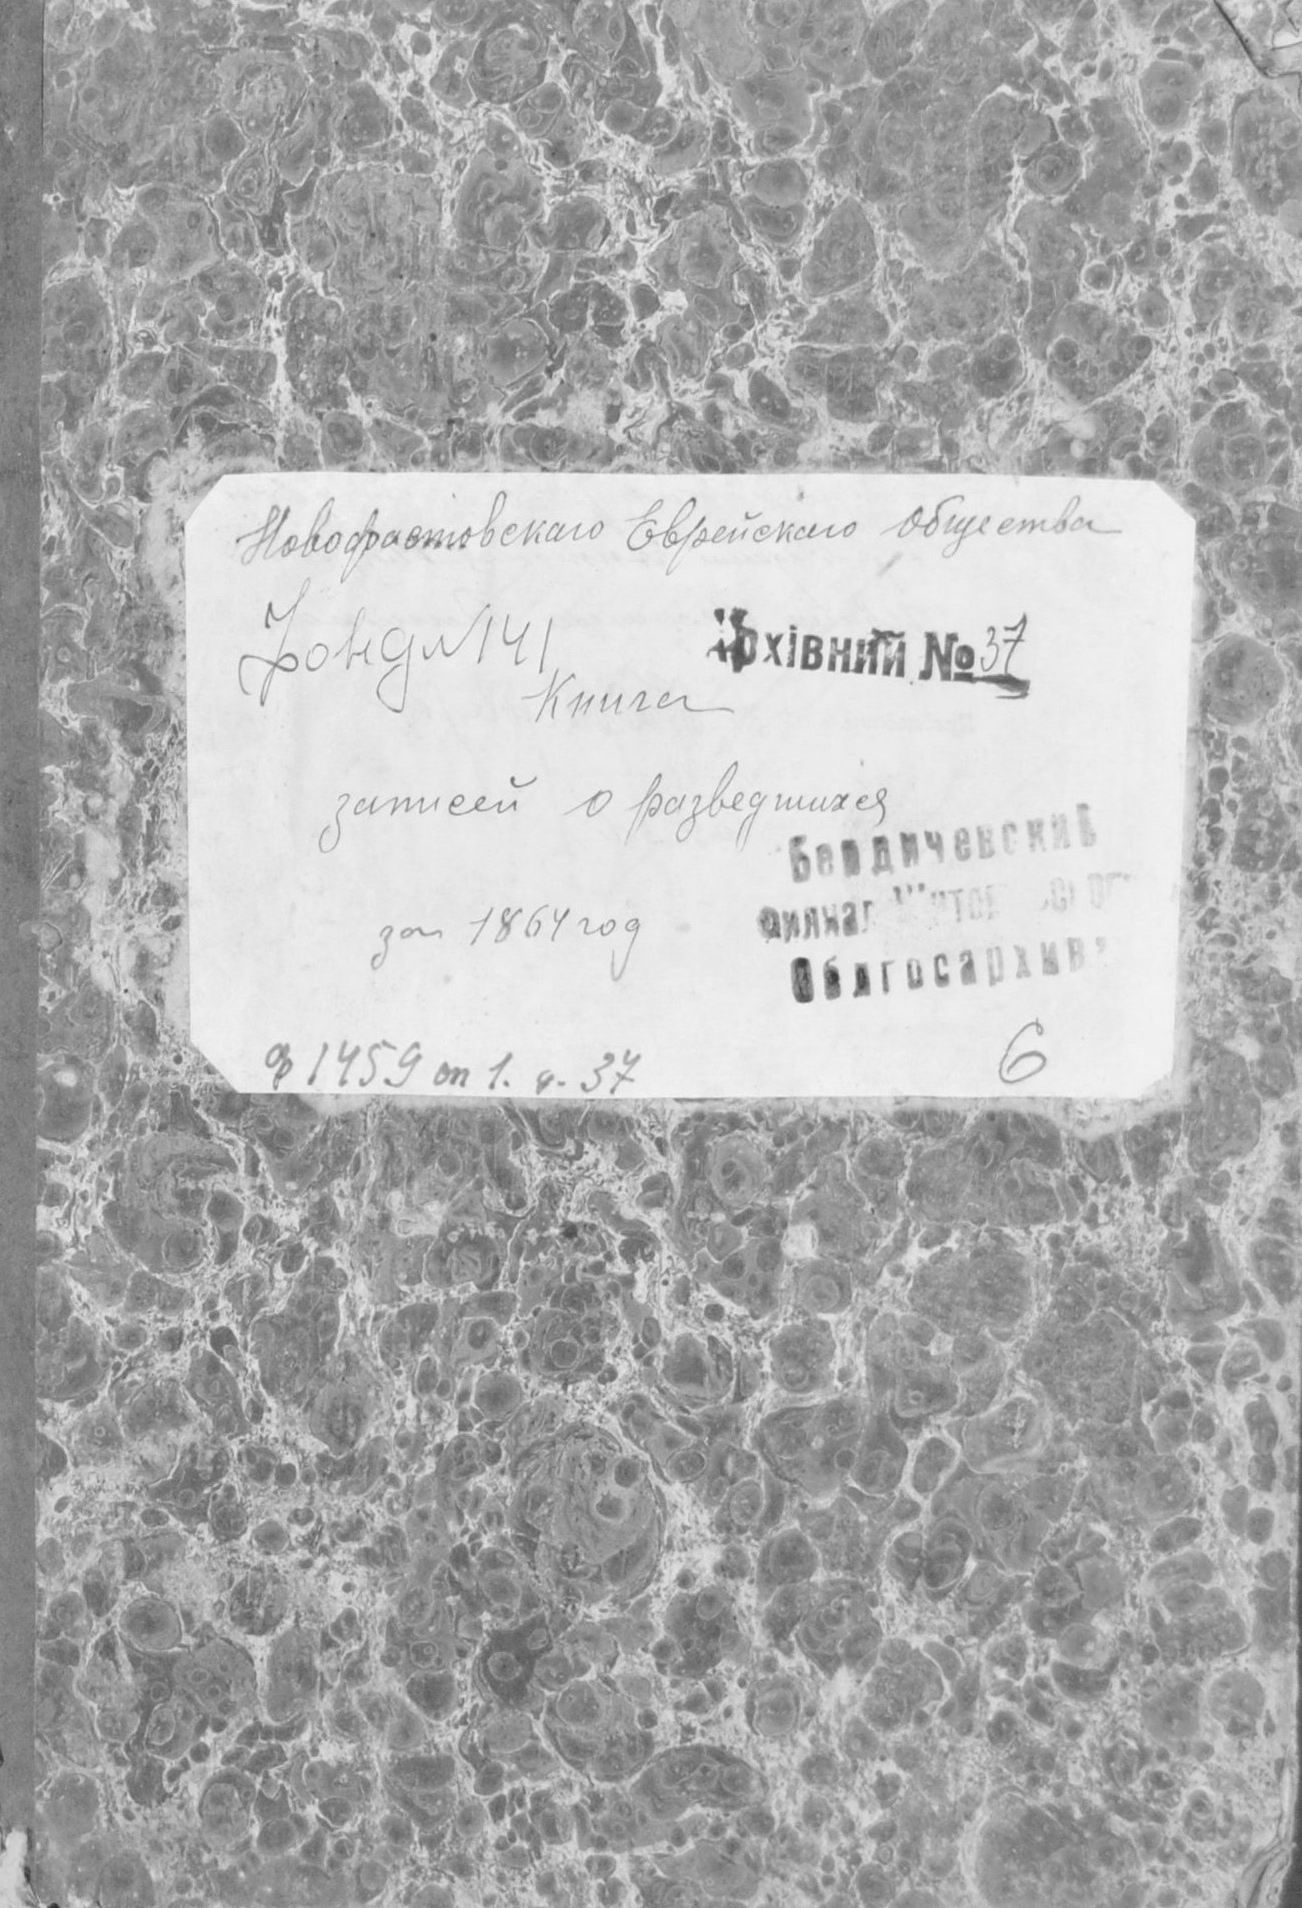 Новофастовскаго Еврейскаго Общества
Фонд №141
Архівний № 37
Книга
записей о разведшихся
за 1864 год
Бердичевский
Филиал Житом
Облгосархива
ф 1459 оп 1. д. 37
6